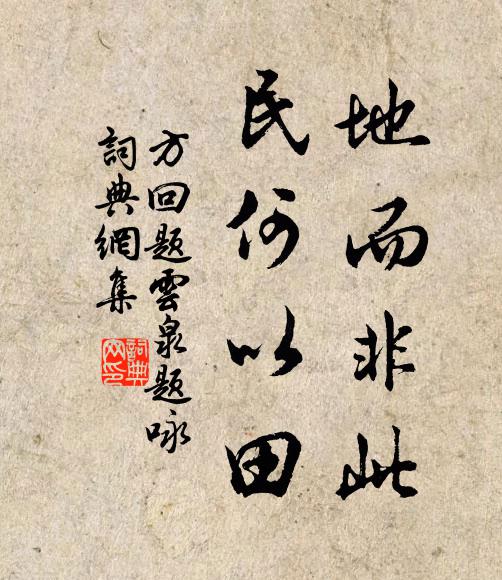 地而非此
民何以田
方回题雲泉题咏
詞典網集
詞典网印